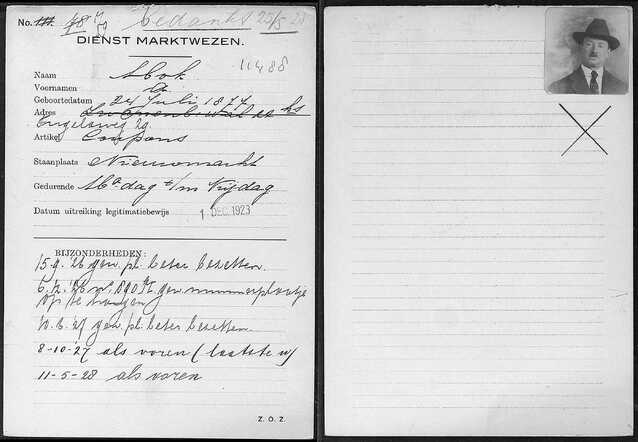 No. 48 Bedankt 25/5 28
DIENST MARKTWEZEN.
11488
Naam Mok
Voornamen A
Geboortedatum 24 Juli 1877
Adres hs
29
Artikel Coupons
Staanplaats Nieuwmarkt
Gedurende Ma dag t/m Vrijdag
Datum uitreiking legitimatiebewijs 1 DEC. 1923
BIJZONDERHEDEN:
15.9.'26 gew. pl. beter bezetten.
6. '26 gew. nummerplaatje
op te hangen
10.6.'27 gew. pl. beter bezetten.
8-10-27 als voren (laatste w)
11-5-28 als voren
Z. O. Z.